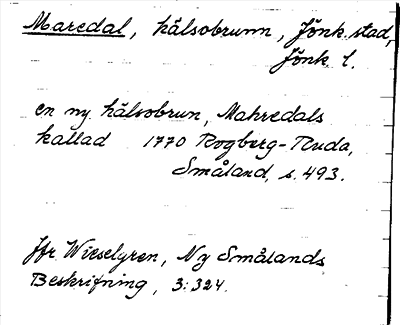 Maredal, hälsobrunn, Jönk. stad,
Jönk. l.
en ny hälsobrun, Mahredals
kallad 1770 Rogberg-Ruda,
Småland, s. 493.
Jfr Wieselgren, Ny Smålands
Beskrifning, 3:324.